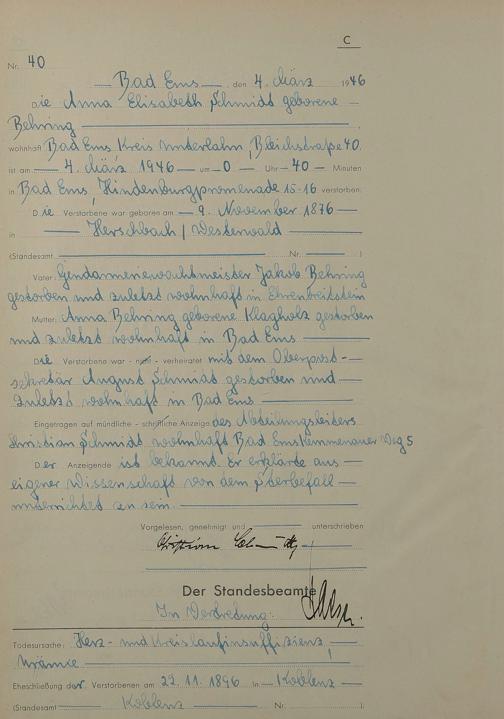 C
Nr. 40
Bad Ems, den 4. März 1946
Die Anna Elisabeth Schmidt geborene
Behring
wohnhaft Bad Ems Kreis Unterlahn, Bleichstraße 40
ist am 4. März 1946 um 0 Uhr 40 Minuten
in Bad Ems, Hindenburgpromenade 15-16 verstorben.
Die Verstorbene war geboren am 9. November 1876
in Herschbach / Westerwald
(Standesamt Nr. )
Vater: Gendarmeriewachtmeister Jakob Behring
gestorben und zuletzt wohnhaft in Ehrenbreitstein
Mutter: Anna Behring geborene Klagholz gestorben
und zuletzt wohnhaft in Bad Ems
Die Verstorbene war - nicht - verheiratet mit dem Oberpost-
sekretär August Schmidt gestorben und
zuletzt wohnhaft in Bad Ems
Eingetragen auf mündliche - schriftliche Anzeige des Abteilungsleiters
Christian Schmidt wohnhaft Bad Ems Kemmenauer Weg 5
Der Anzeigende ist bekannt. Er erklärte aus
eigener Wissenschaft von dem Sterbefall
unterrichtet zu sein.
Vorgelesen, genehmigt und unterschrieben
Christian Schmidt
Der Standesbeamte
In Vertretung:
Todesursache: Herz- und Kreislaufinsuffizienz,
Urämie
Eheschließung der Verstorbenen am 22.11.1896 in Koblenz
(Standesamt Koblenz Nr. )